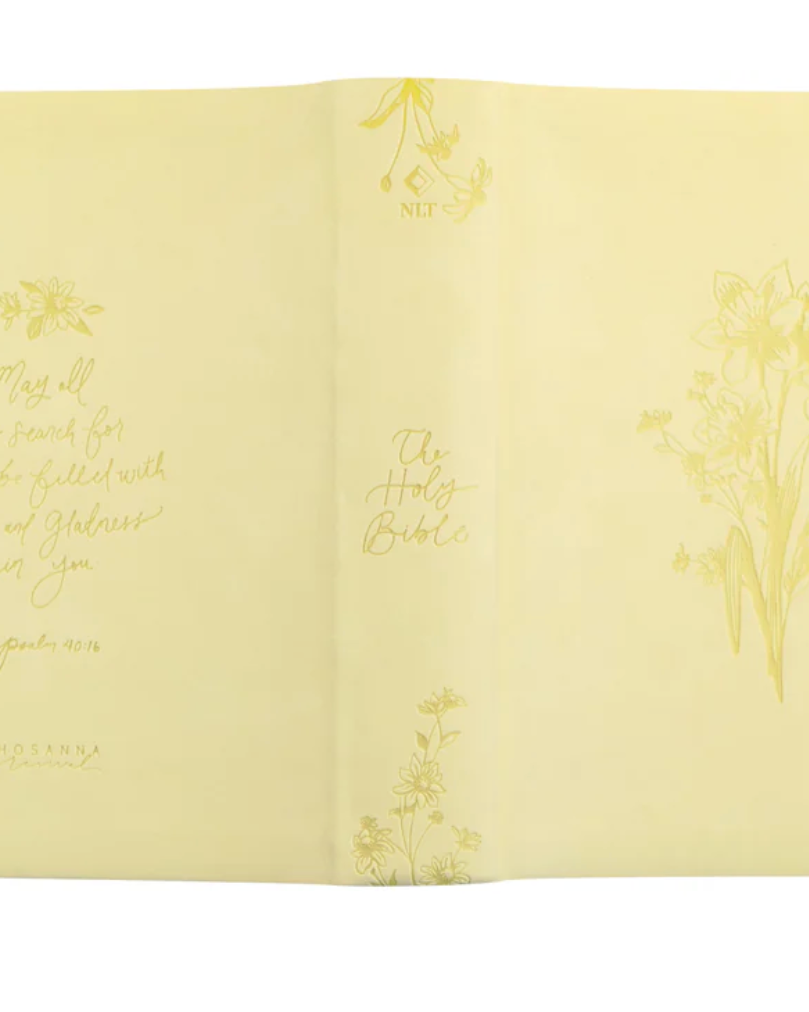 May all
search for
be filled with
and gladness
in you
psalm 40:16
HOSANNA
revival
NLT
The
Holy
Bible